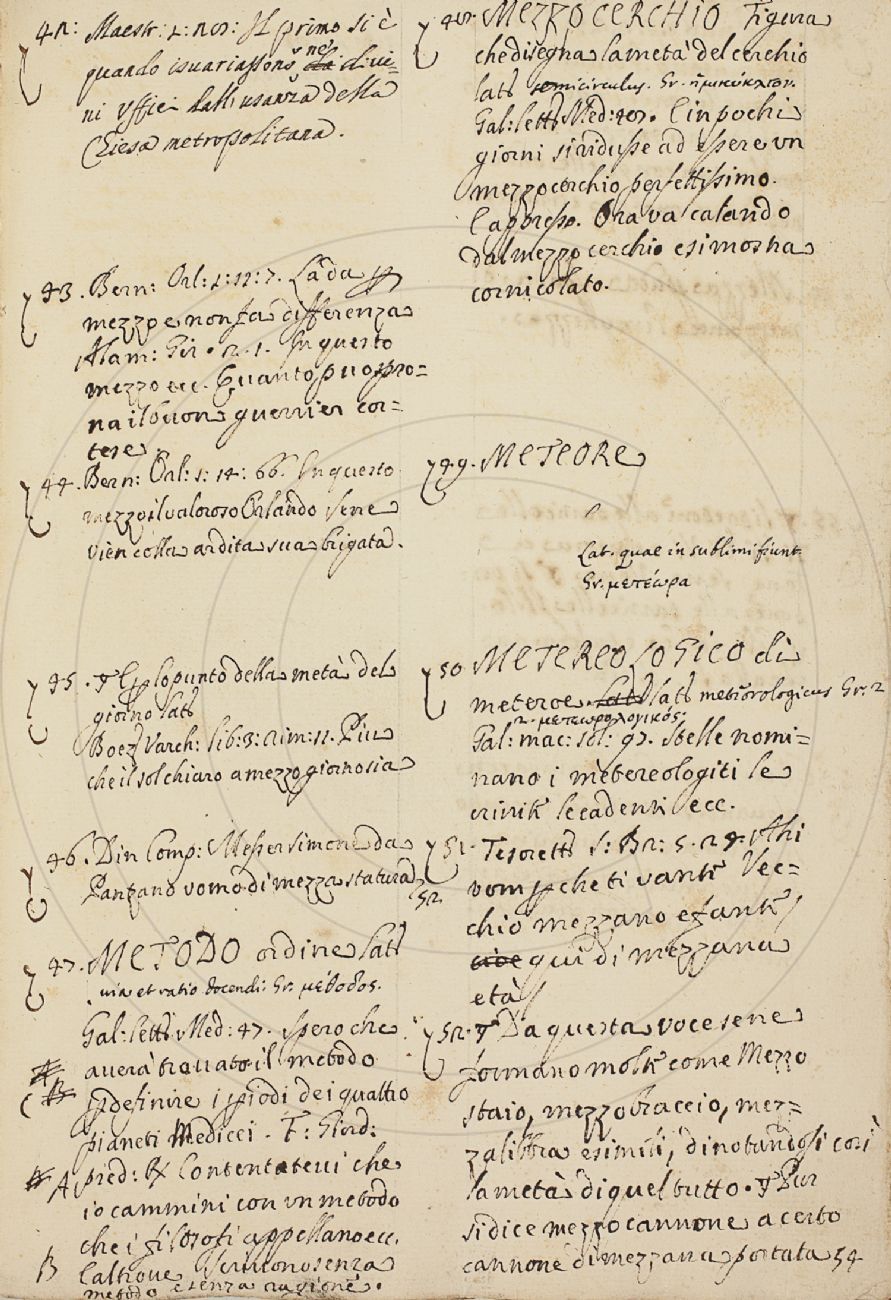 42: Maestr: 1: nos: Il primo si è
quando isuariassono ne' divi=
ni Uffici dall'usanza della
Chiesa metropolitana.
43. Bern: Orl: 1: 11: 7. La da
mezzo e non fa differenza
Alam: Gir. 12. 1. In questo
mezzo ecc. Quanto può spro=
na il buon guerrier cor=
tese.
44. Bern: Orl: 1: 14: 66. In questo
mezzo il valoroso Orlando sene
vien colla ardita sua brigata.
45. Lo punto della metà del
giorno latt
Boez Varch: lib: 3: rim: 11. Piu
che il sol chiaro a mezzo giorno sia
46. Din Comp: Messer Simone da
Panzano vomo di mezza statura
47. METODO ordine latt
via et ratio docendi: Gr. μέθοδος.
Gal: lett: Med: 47. spero che
averà trovato il metodo
definire i piodi dei quattro
pianeti Medicei. F: Giord:
A pred: R Contentatevi che
io cammini con un metodo
che i filosofi appellano ecc.
B Caltrove senza
metodo e senza ragione.
48. MEZZO CERCHIO Figura
che disegna la metà del cerchio
latt semicirculus. Gr. ἡμικύκλιον.
Gal: lett Med: 107. E in pochi
giorni si ridusse ad essere un
mezzo cerchio perfettissimo.
E appresso. Ora va calando
dal mezzo cerchio e si mostra
cornicolato.
49. METEORE
Lat. quae in sublimi fiunt.
Gr. μετέωρα
50 METEREOLOGICO di
meteroe latt meteorologicus Gr. 2
2. μετεωρολογικός.
Gal: mac: sol: 97. stelle nomi=
nano i metereologiti le
crinite le cadenti ecc.
51. Tesorett S: Br: 5. 24. Ahi
vom pche ti vante Vec=
chio mezzano e fante /
cioe qui di mezzana
età /
52. Da questa voce sene
formano molte come Mezzo
staio, mezzo braccio, mez=
zalibbra e simili, dinotandosi così
la metà di quel tutto. Pur
si dice mezzo cannone a certo
cannone di mezzana portata 54